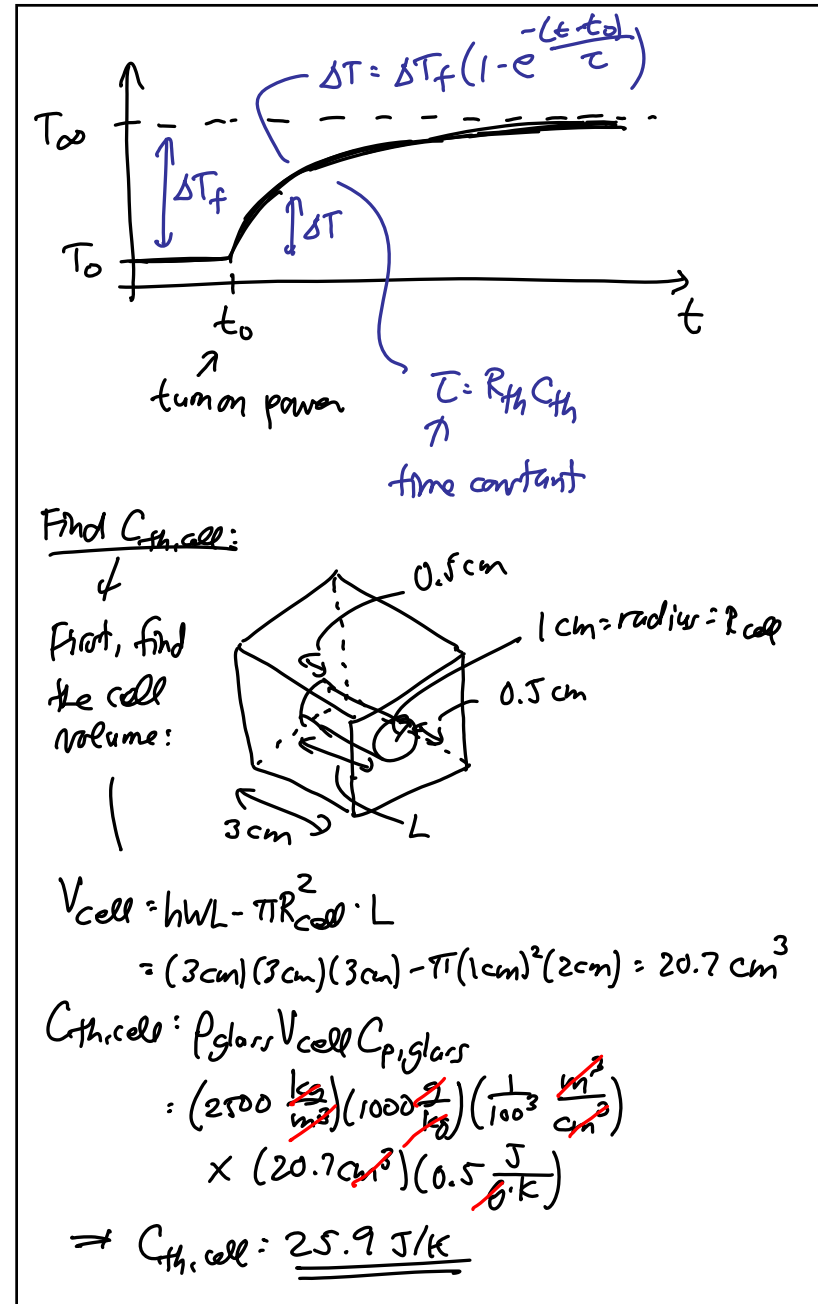 ΔT = ΔT_f (1 - e^{-(t-t₀)/τ})
T∞
ΔT_f
ΔT
T₀
t₀
t
turn on power
τ = R_th C_th
time constant
Find C_th,cell:
First, find
the cell
volume:
0.5 cm
1 cm = radius = R_cell
0.5 cm
3 cm
L
V_cell = hWL - πR_cell² · L
= (3cm)(3cm)(3cm) - π(1cm)²(2cm) = 20.7 cm³
C_th,cell = ρ_glass V_cell C_p,glass
= (2500 kg/m³)(1000 g/kg)(1/100³ m³/cm³)
× (20.7cm³)(0.5 J/g·K)
⇒ C_th,cell = 25.9 J/K